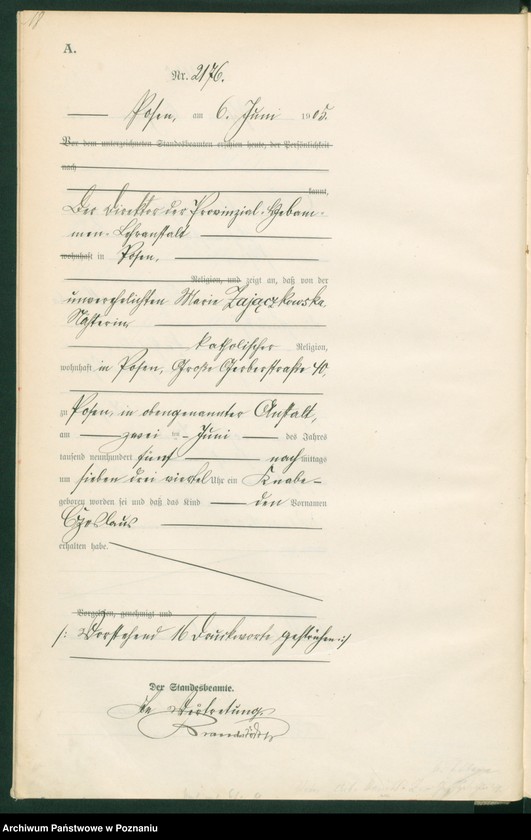 A.
Nr. 2176.
Posen, am 6. Juni 1905.
Vor dem unterzeichneten Standesbeamten erschien heute, der Persönlichkeit
nach
kannt,
Der Direktor der Provinzial-Hebam-
men-Lehranstalt
wohnhaft in Posen,
Religion, und zeigt an, daß von der
unverehelichten Marie Zajączkowska,
Nähterin,
katholischer Religion,
wohnhaft in Posen, Große Gerberstraße 40,
zu Posen, in obengenannter Anstalt,
am zwei ten Juni des Jahres
tausend neunhundert fünf nach mittags
um sieben drei viertel Uhr ein Knabe
geboren worden sei und daß das Kind den Vornamen
Czeslaus
erhalten habe.
Vorgelesen, genehmigt und
/: Vorstehend 16 Druckworte gestrichen :/
Der Standesbeamte.
In Vertretung.
Archiwum Państwowe w Poznaniu